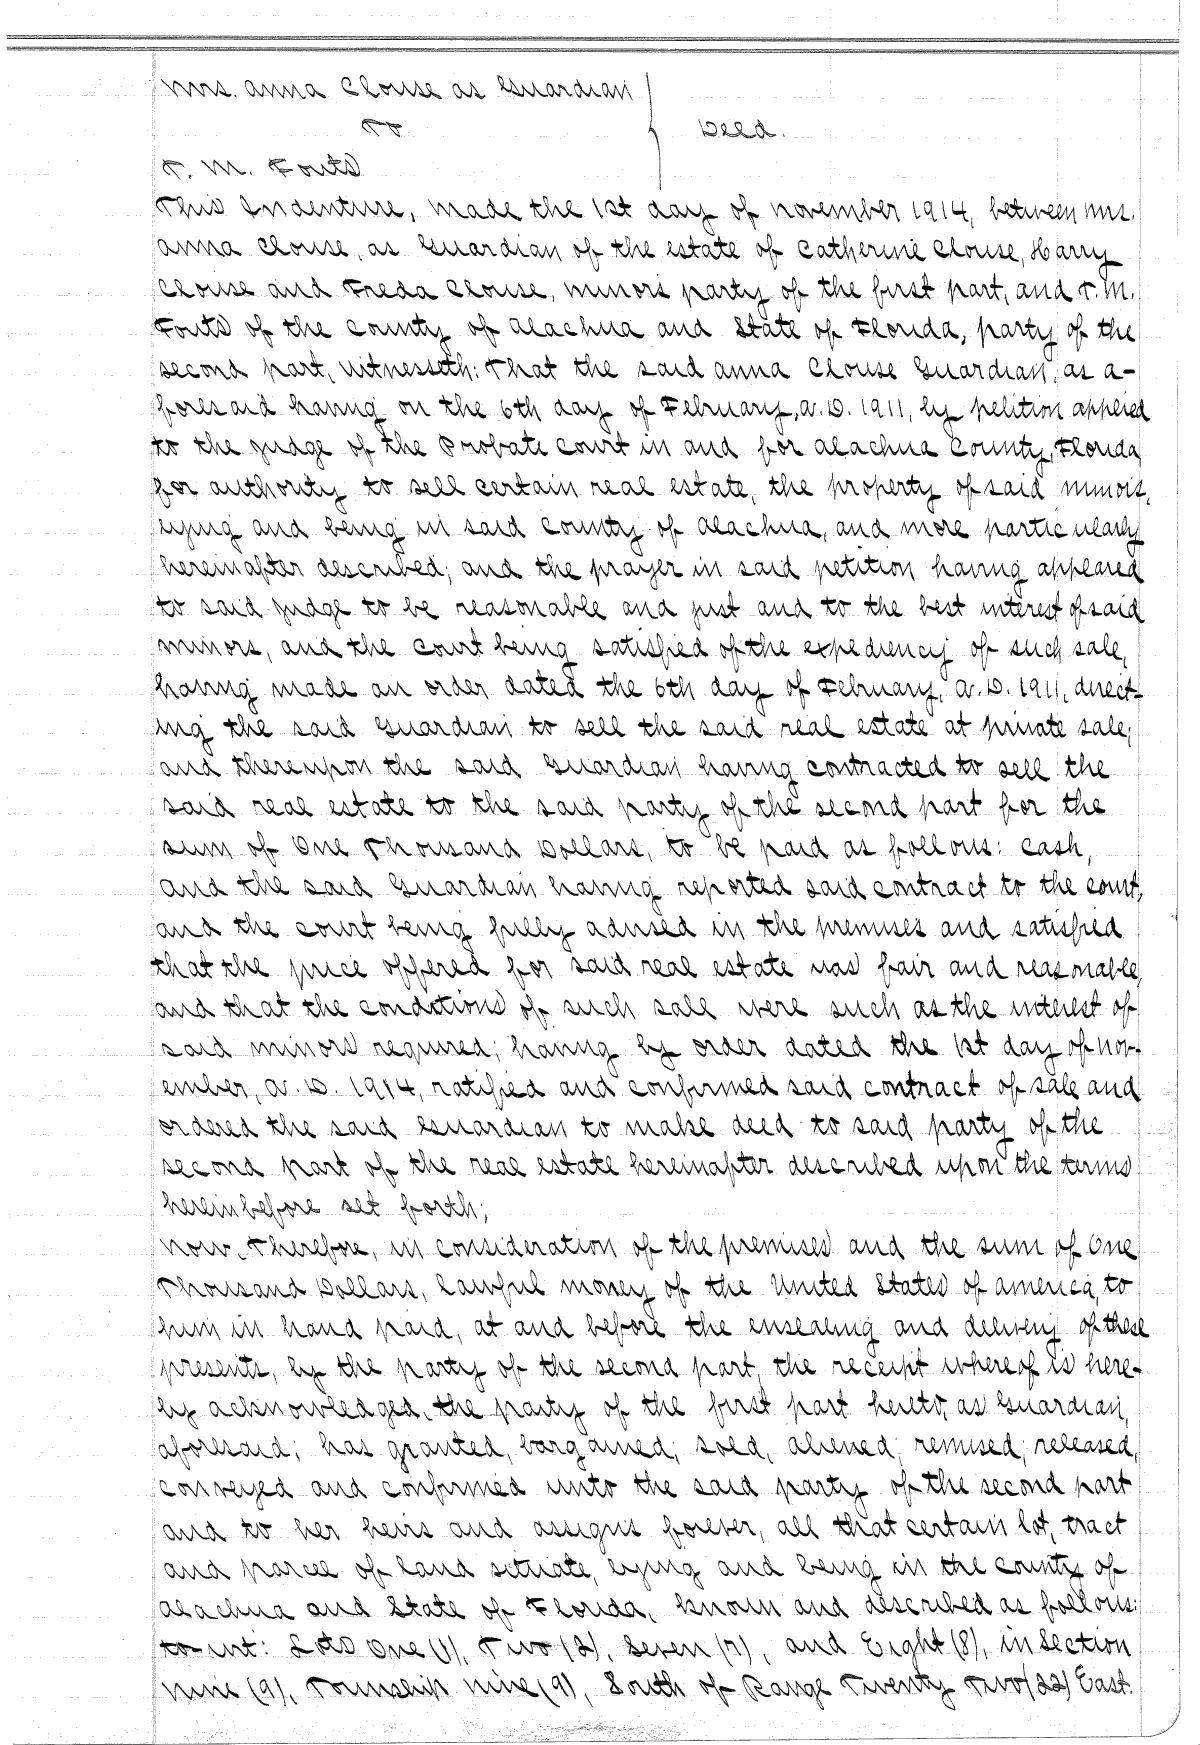 Mrs. Anna Clouse as Guardian
To Deed.
T. M. Fouts
This Indenture, made the 1st day of November 1914, between Mrs.
Anna Clouse, as Guardian of the estate of Catherine Clouse, Harry
Clouse and Freda Clouse, minors party of the first part, and T. M.
Fouts of the County of Alachua and State of Florida, party of the
second part, Witnesseth: That the said Anna Clouse Guardian, as a-
foresaid having on the 6th day of February, A. D. 1911, by petition applied
to the Judge of the Probate Court in and for Alachua County, Florida
for authority to sell certain real estate, the property of said minors,
lying and being in said County of Alachua, and more particularly
hereinafter described; and the prayer in said petition having appeared
to said Judge to be reasonable and just and to the best interest of said
minors, and the Court being satisfied of the expediency of such sale,
having made an order dated the 6th day of February, A. D. 1911, direct-
ing the said Guardian to sell the said real estate at private sale;
and thereupon the said Guardian having contracted to sell the
said real estate to the said party of the second part for the
sum of One Thousand Dollars, to be paid as follows: Cash,
and the said Guardian having reported said contract to the court,
and the court being fully advised in the premises and satisfied
that the price offered for said real estate was fair and reasonable,
and that the conditions of such sale were such as the interest of
said minors required; having by order dated the 1st day of Nov-
ember, A. D. 1914, ratified and confirmed said contract of sale and
ordered the said Guardian to make deed to said party of the
second part of the real estate hereinafter described upon the terms
hereinbefore set forth;
Now, Therefore, in consideration of the premises and the sum of One
Thousand Dollars, lawful money of the United States of America, to
him in hand paid, at and before the ensealing and delivery of these
presents, by the party of the second part, the receipt whereof is here-
by acknowledged, the party of the first part hereto, as Guardian,
aforesaid; has granted, bargained, sold, aliened, remised, released,
conveyed and confirmed unto the said party of the second part
and to her heirs and assigns forever, all that certain lot, tract
and parcel of land situate, lying and being in the County of
Alachua and State of Florida, known and described as follows:
to-wit: Lots One (1), Two (2), Seven (7), and Eight (8), in Section
nine (9), Township nine (9), South of Range Twenty Two (22) East.